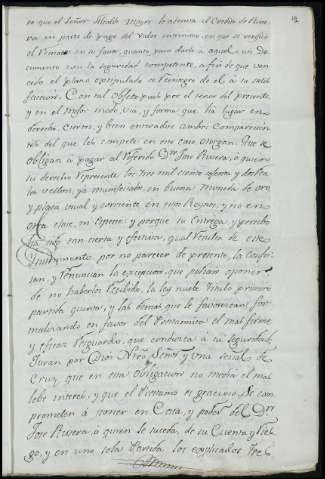 12
so que el Señor Alcalde mayor lo asienta el Credito de Rive-
ra en parte de pago del valor en que se verificó
el Remate en su favor, quanto para darle a aquel un do-
cumento con la seguridad competente, a fin de que ven-
cido el plazo estipulado se reintegre de él a su satis-
faccion. Con tal objeto pues por el tenor del presente
y en el mejor modo, via y forma que ha lugar en
derecho, ciertos, y bien enterados ambos Comparecien-
tes del que les compete en este caso otorgan: Que se
obligan á pagar al referido Dn. Jose Rivera, ó quien
su derecho represente los tres mil ciento ochenta y
rs. vellon, ya manifestados en buena moneda de oro
y plata usual y corriente en estos Reynos, y no en
otra clase, ni especie; y porque su entrega, y recibo
ha sido tan cierta y efectiva, qual resulta de este
Instrumento, por no parecer de presente, la confie-
san, y renuncian la excepcion que podian oponer
de no haberlos recibido, la ley nueve titulo primero
partida quinta, y las demas que le favorezcan, for-
malizando en favor del Prestamista el mas firme
y eficaz resguardo, que conduzca á su seguridad;
Juran por Dios Ntro. Señor y una señal de
Cruz, que en esta obligacion no media el mas
lebe interes, y que el Prestamo es gracioso; Se com-
prometen á poner en Casa, y poder del Dn.
Jose Rivera, ó quien le suceda, de su Cuenta y ries-
go, y en una sola Partida los explicados tres